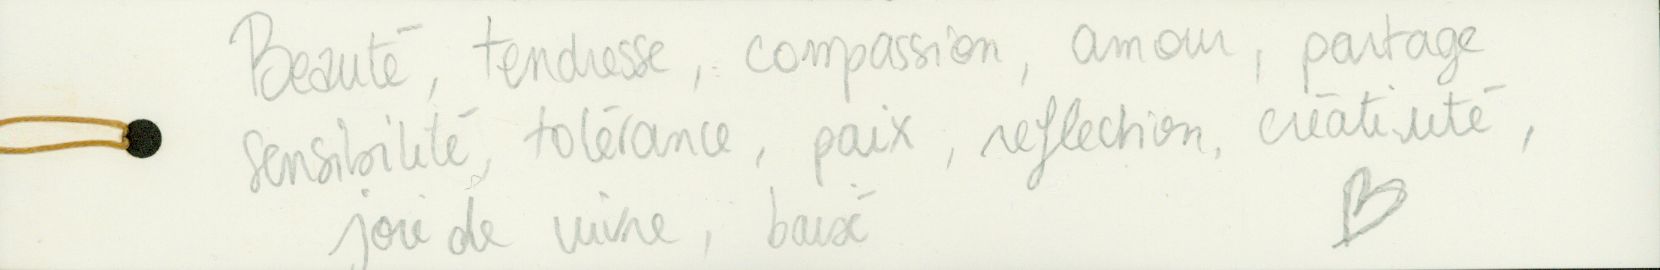 Beauté, tendresse, compassion, amour, partage
sensibilité, tolérance, paix, reflection, créativité,
joie de vivre, baisé